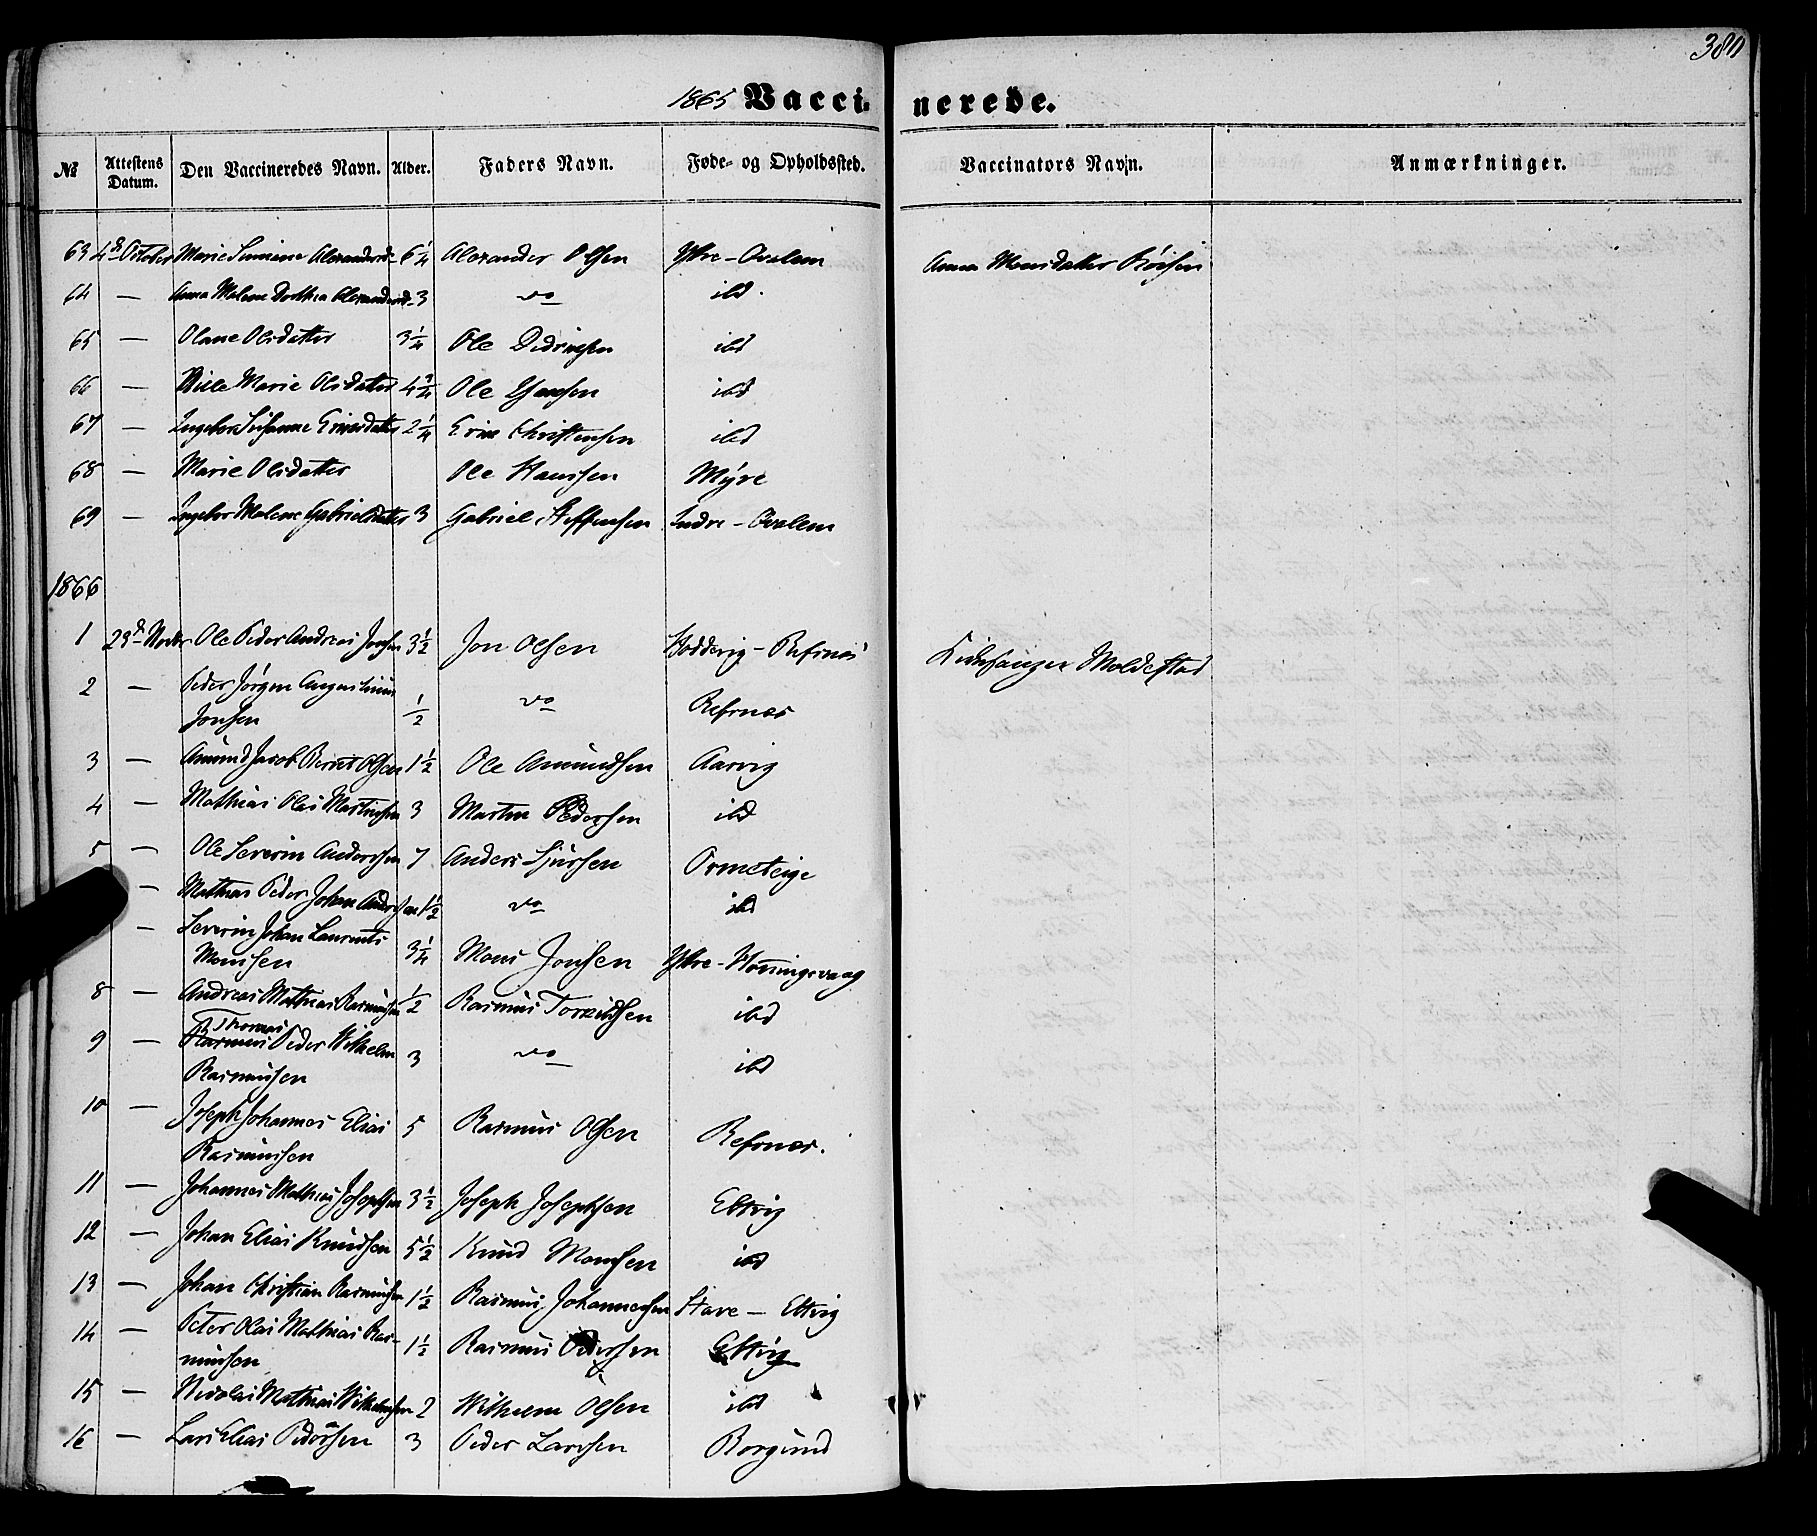 380
1865 Vaccinerede.
№ | Attestens Datum. | Den Vaccineredes Navn. | Alder. | Faders Navn. | Føde- og Opholdssted. | Vaccinators Navn. | Anmærkninger.
63 4de October Marie Alexandersd. 6 1/4 Alexander Olsen Ytre-Qvalem Anna Monsdatter
64 — Anna Malene Dorthea Alexandersd. 3 do ibd.
65 — Oline Olsdatter 3 1/4 Ole Didriksen ibd
66 — Marie Olsdatter 4 Ole ibd
67 — Ingebor Johanne Ericsdatter 2 1/4 Eric Christensen ibd
68 — Marie Olsdatter Ole Hanssen Myre
69 — Ingebor Malene Gabrielsdatter 3 Gabriel Steffensen Indre-Qvalem
1866
1 23de Novbr Ole Peder Andreas Jonsen 3 1/2 Jon Olsen Hoddevig-Refsnes Kirkesanger Moldestad
2 — Peder Jørgen Augustinus
Jonsen 1/2 do Refsnes
3 — Amund Jacob Bernt Olsen 1 1/2 Ole Amundsen Aarvig
4 — Mathias Olai Martinsen 3 Martin Pedersen ibd
5 — Ole Severin Anderssen 7 Anders Sjursen Ormeteige
— Mathias Peder Johan Andersen 1 1/2 do ibd
— Severin Johan Laurents
Monsen 3 1/4 Mons Jonsen Ytre-Honningsvaag
8 — Andreas Mathias Rasmussen 1/2 Rasmus Torkildsen ibd
Thomas
9 — Rasmus Peder Wilhelm
Rasmussen 3 do ibd
10 — Joseph Johannes Elias
Rasmussen 5 Rasmus Olsen Refsnes.
11 — Johannes Mathias Josephsen 3 1/2 Joseph Josephsen Eltvig
12 — Johan Elias Knudsen 5 1/2 Knud Monsen ibd
13 — Johan Christian Rasmussen 1 1/2 Rasmus Johannessen Stave — Eltvig
14 — Peter Olai Mathias Ras-
mussen 1 1/2 Rasmus Pedersen Eltvig
15 — Nicolai Mathias Wilhelmsen 2 Wilhelm Olsen ibd
16 — Lars Elias Pedersen 3 Peder Larssen Borgund